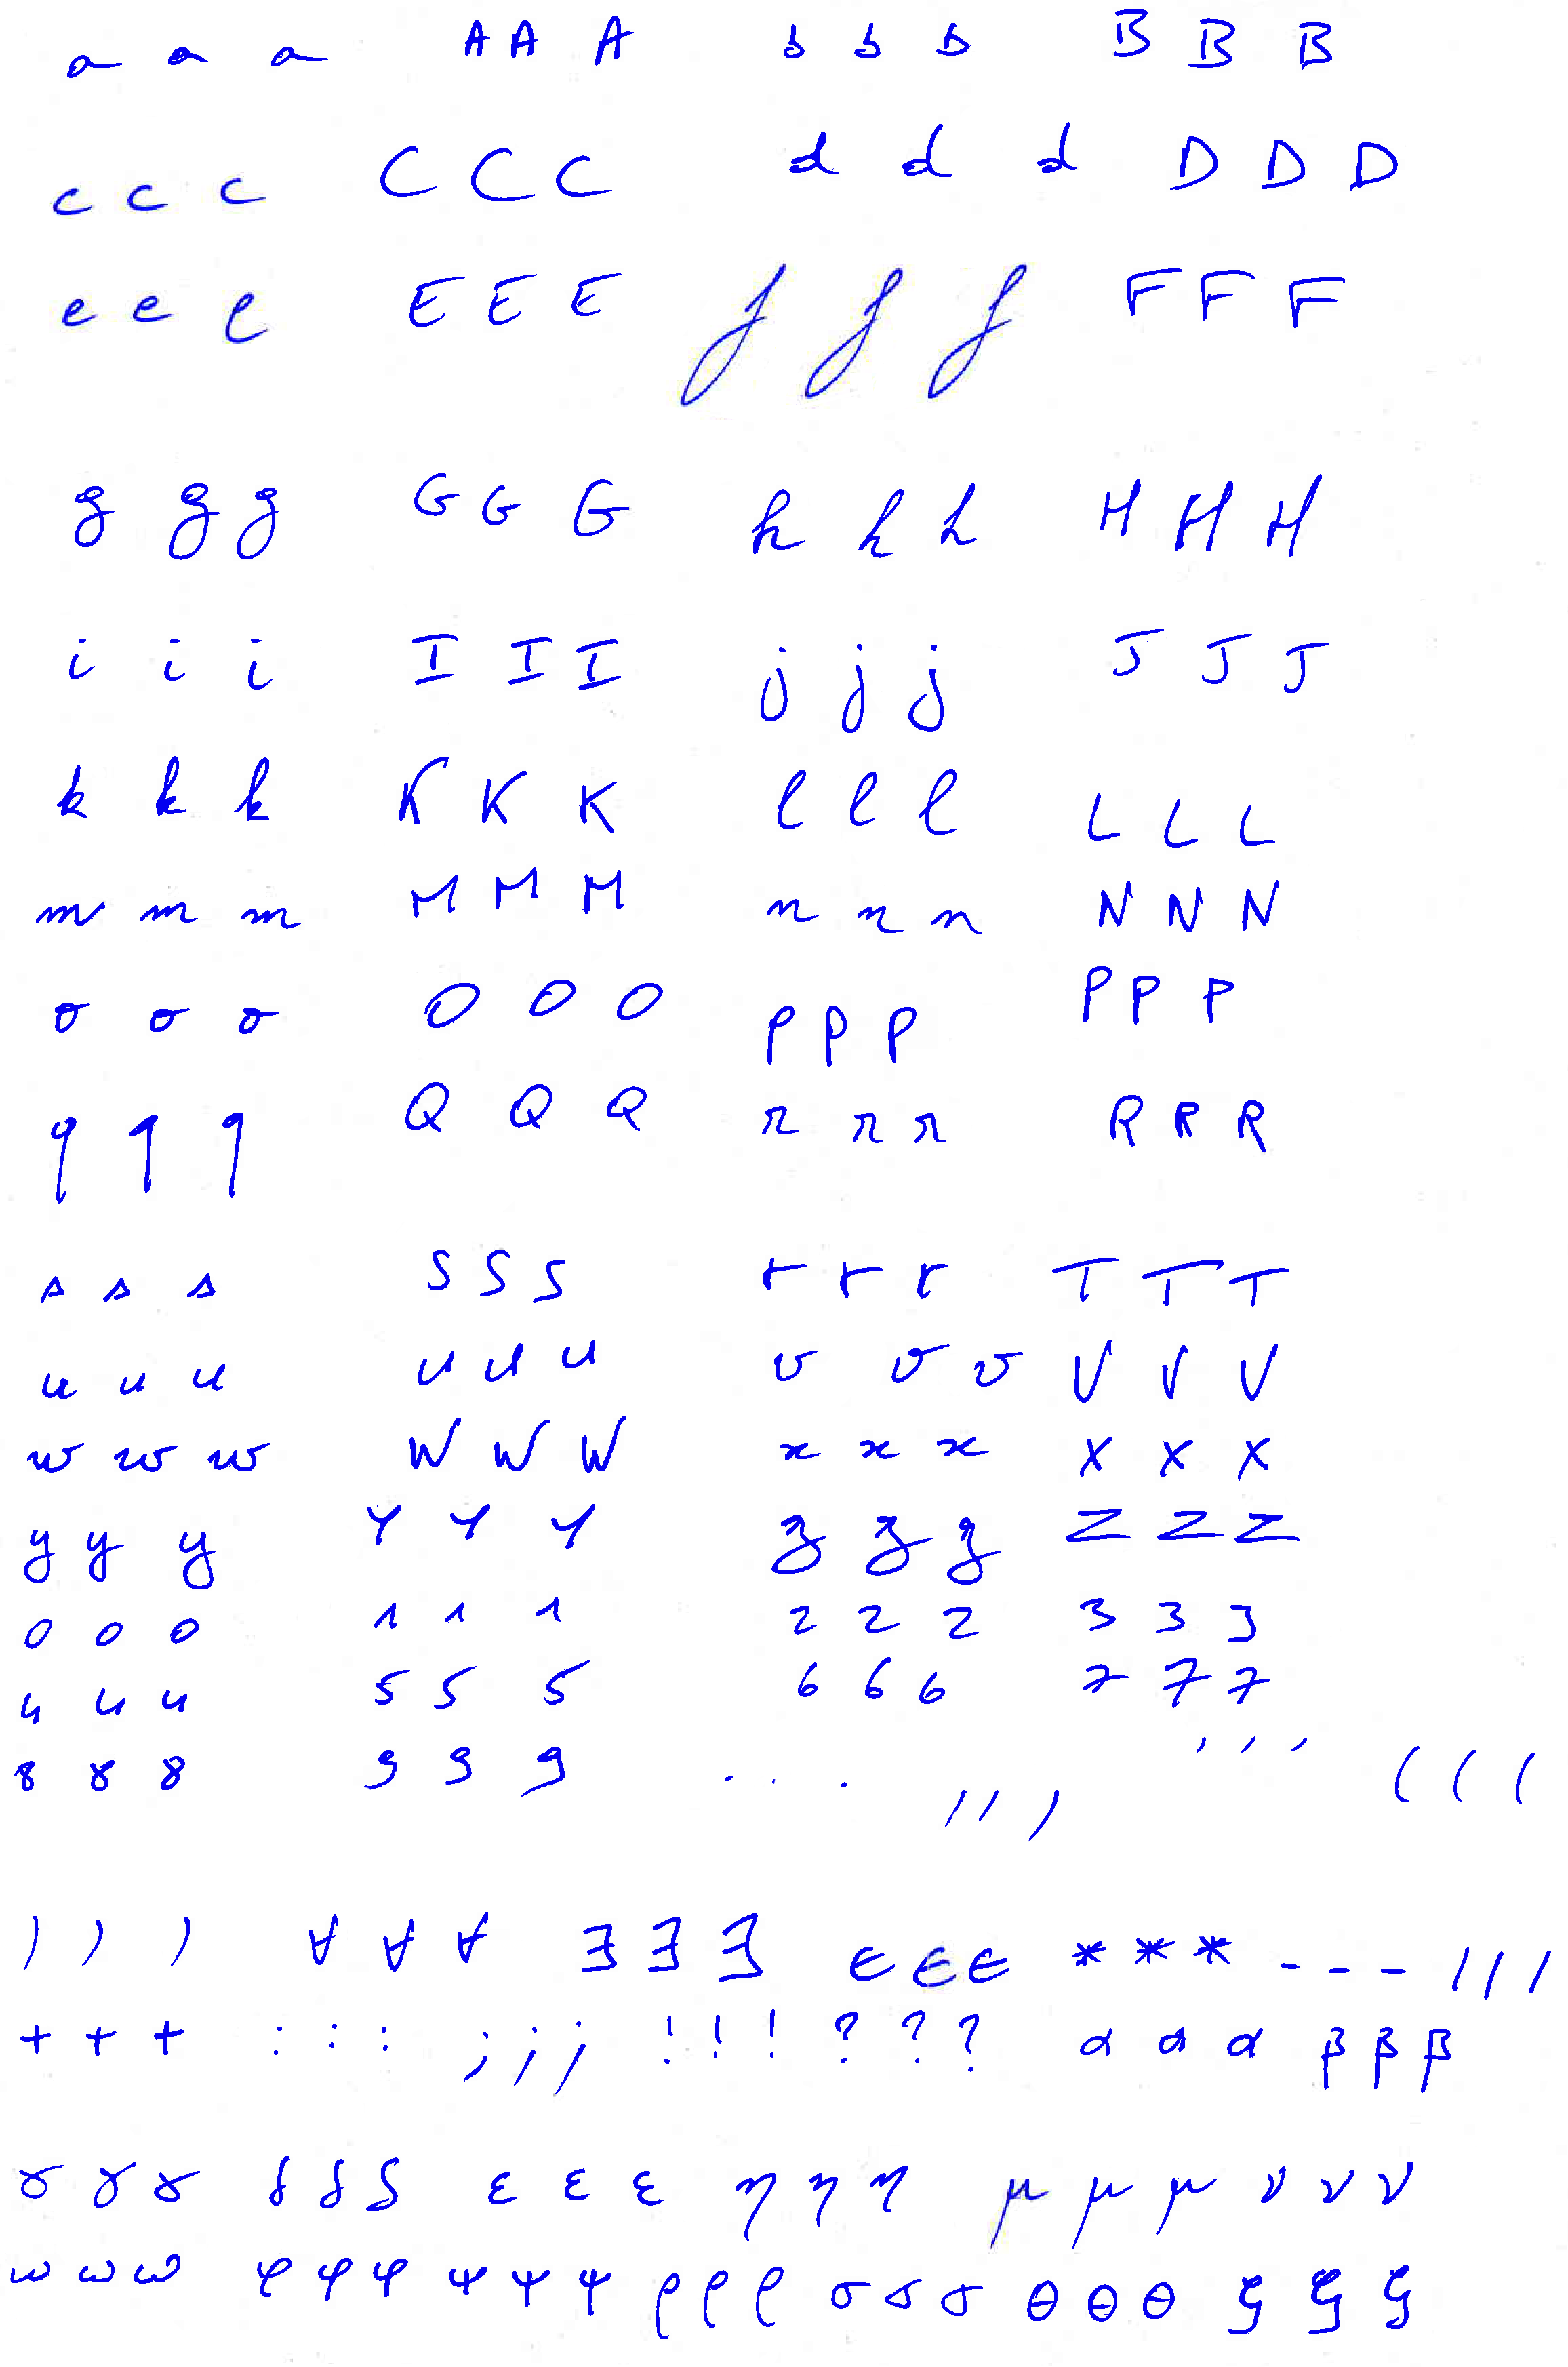 a a a A A A b b b B B B
c c c C C C d d d D D D
e e e E E E f f f F F F
g g g G G G h h h H H H
i i i I I I j j j J J J
k k k K K K l l l L L L
m m m M M M n n n N N N
o o o O O O p p p P P P
q q q Q Q Q r r r R R R
s s s S S S t t t T T T
u u u U U U v v v V V V
w w w W W W x x x X X X
y y y Y Y Y z z z Z Z Z
0 0 0 1 1 1 2 2 2 3 3 3
4 4 4 5 5 5 6 6 6 7 7 7
8 8 8 9 9 9 . . . , , , ' ' ' ( ( (
) ) ) ∀ ∀ ∀ ∃ ∃ ∃ ∈ ∈ ∈ * * * - - - / / /
+ + + : : : ; ; ; ! ! ! ? ? ? α α α β β β
γ γ γ δ δ δ ε ε ε η η η μ μ μ ν ν ν
ω ω ω φ φ φ ψ ψ ψ ρ ρ ρ σ σ σ θ θ θ ξ ξ ξ